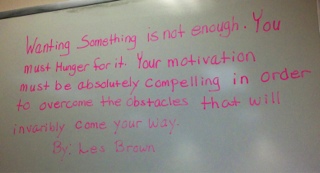 Wanting Something is not enough. You
must Hunger for it. Your motivation
must be absolutely compelling in order
to overcome the obstacles that will
invaribly come your way.
By: Les Brown